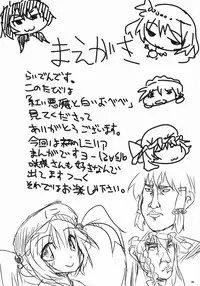 まえがき
らいでんです。
このたびは
「紅い悪魔と白いおべべ」
見てくださって
ありがとうございます。
今回は
レミリア
まんがですヨー
咲夜さんも好きなんで
出てます
それではお楽しみ下さい。